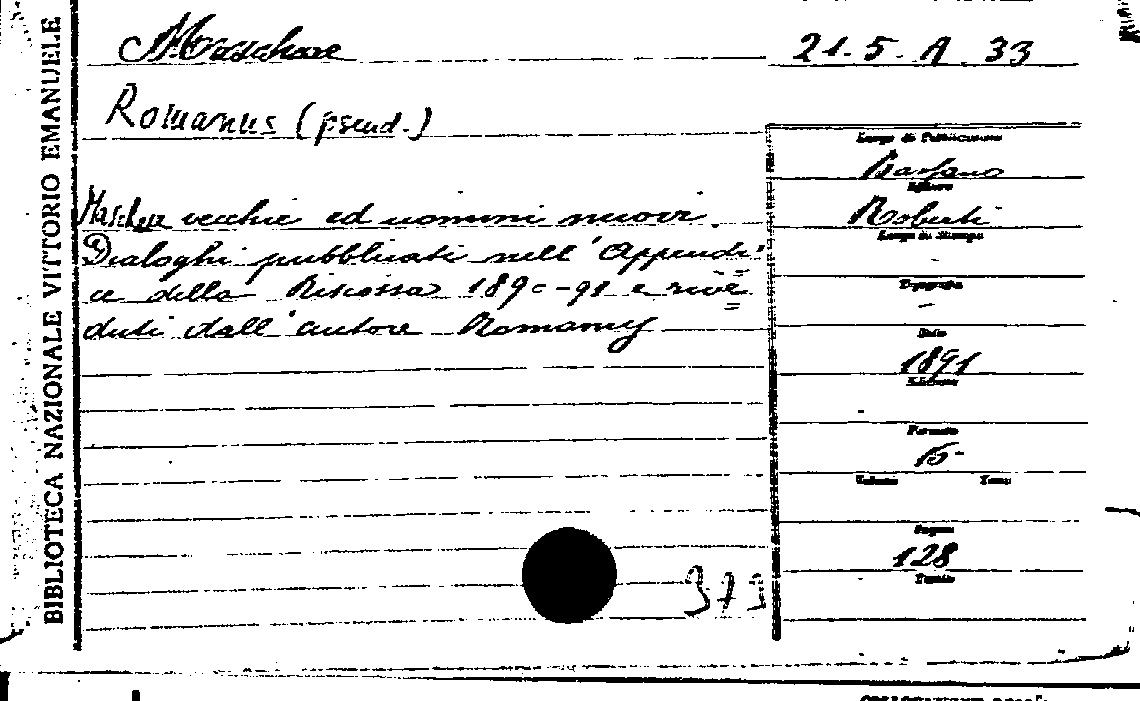 BIBLIOTECA NAZIONALE VITTORIO EMANUELE
Maschere
21. 5. A. 33
Romanus (pseud.)
Luogo di Pubblicazione
Bassano
Editore
Roberti
Luogo di Stampa
Maschere vecchie ed uomini nuovi.
Dialoghi pubblicati nell'Appendi=
ce della Riscossa 1890-91 e rive=
duti dall'autore Romanus
Tipografia
—
Data
1891
Edizione
Formato
15-
Volume Tomo
Pagine
128
Tavole